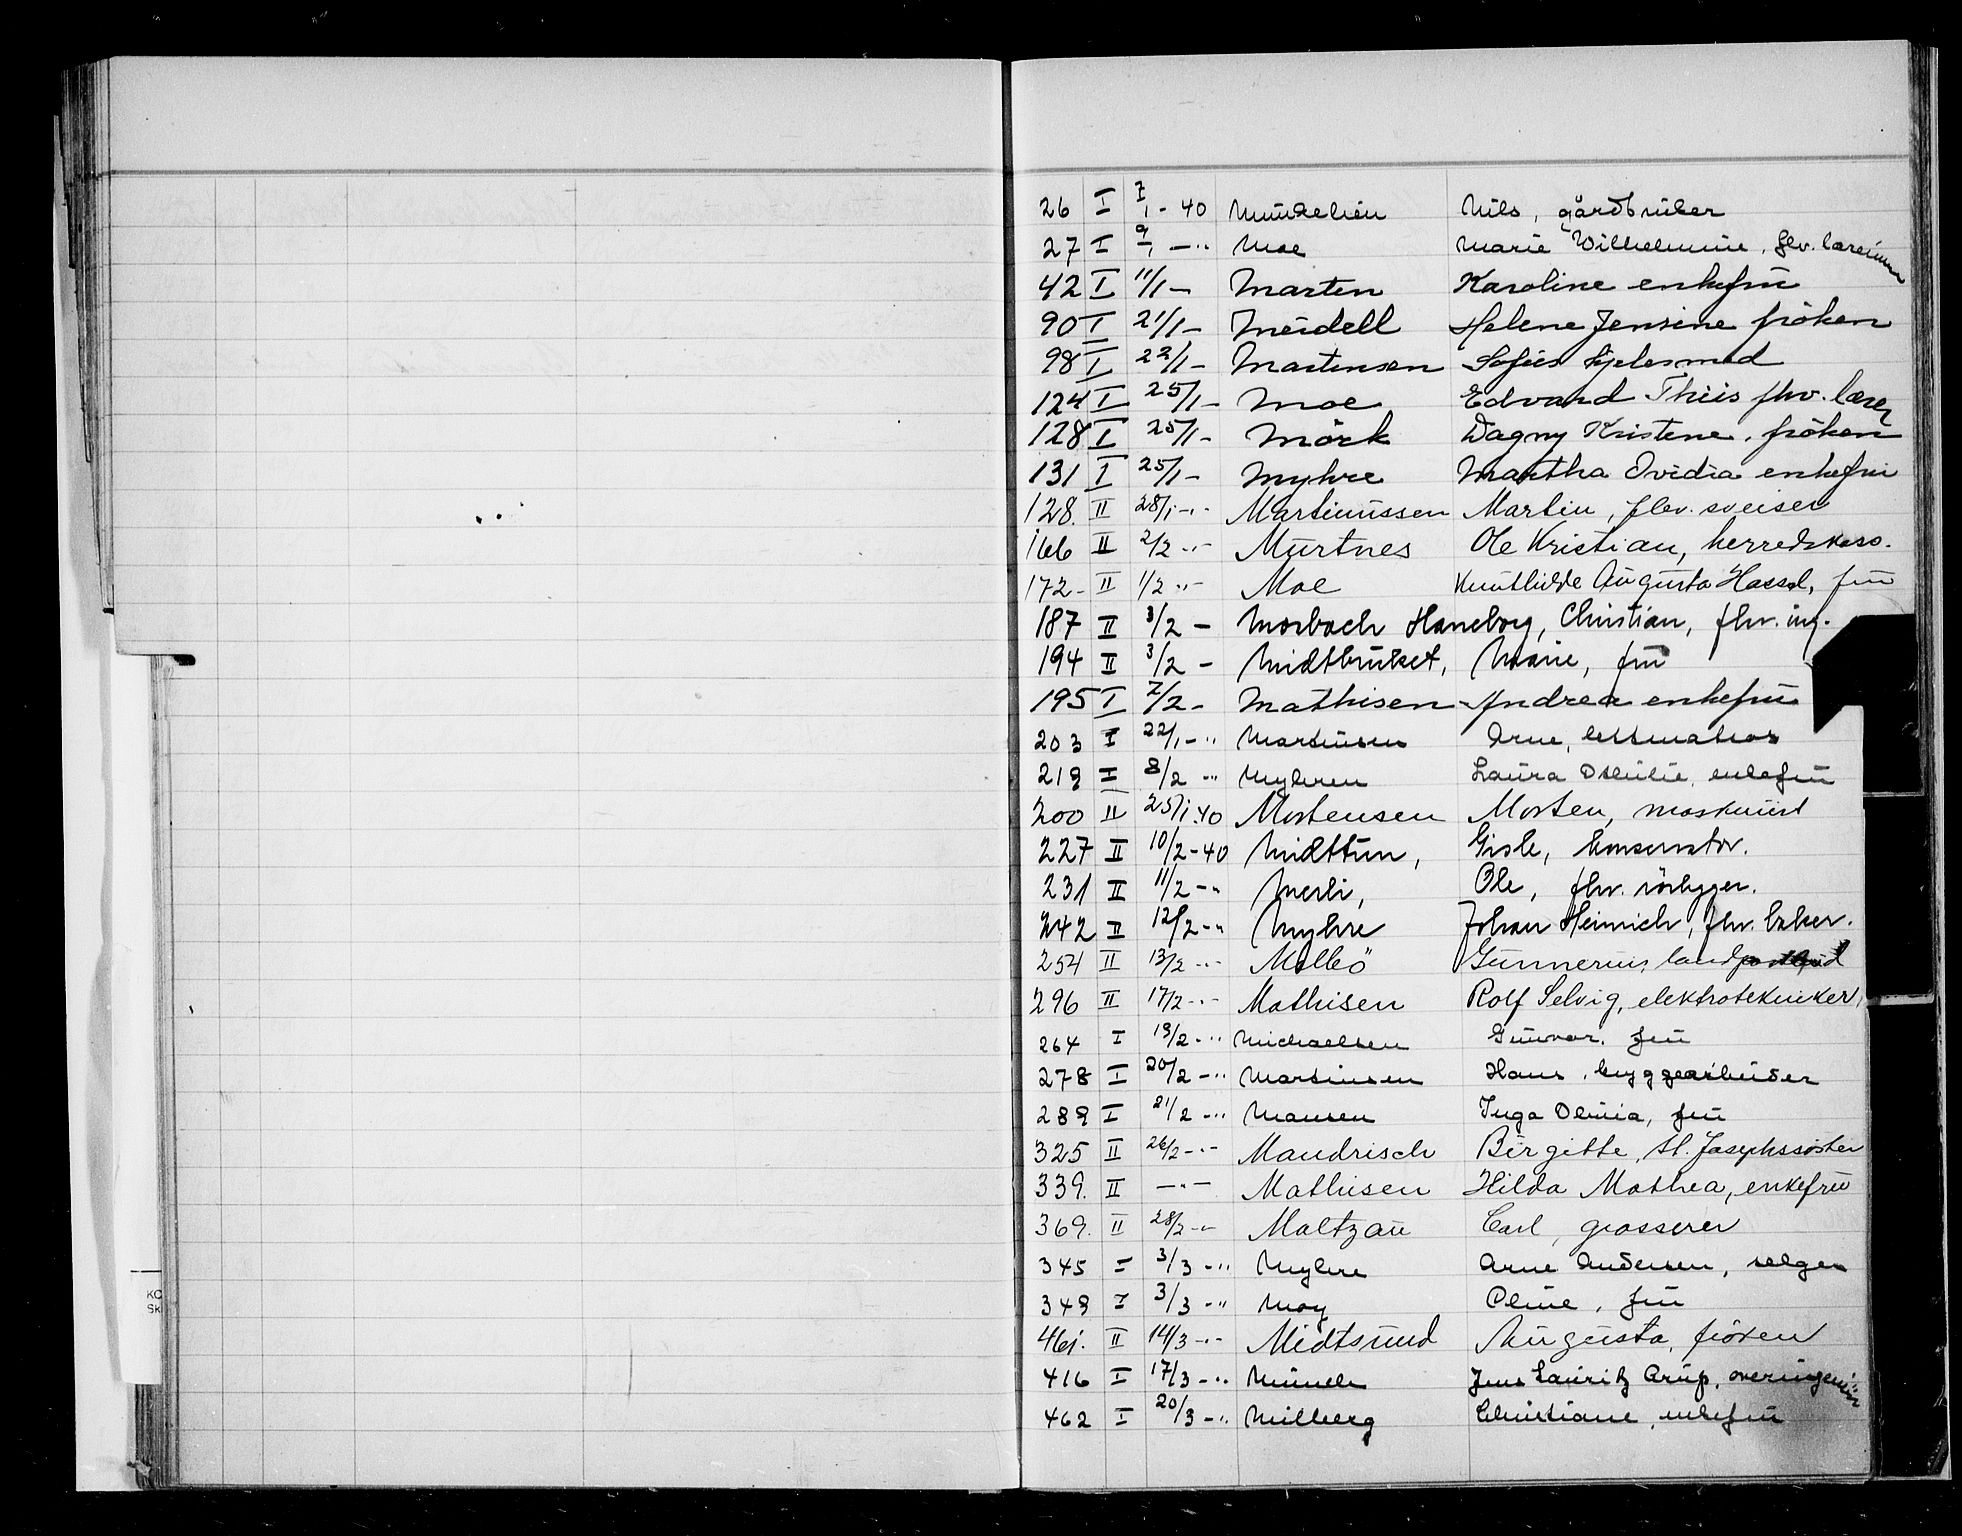 26 I 7/1 - 40 Mündelien Nils, gårdbruker
27 I 9/1 - " Moe Marie Wilhelmine, fhv. lærerinne
42 I 11/1 - Marten Karoline enkefru
90 I 21/1 - Meidell Helene Jensine fröken
98 I 22/1 - Martensen Sofies
124 I 25/1 - Moe Edvard Theis fhv. lærer
128 I 25/1 - Mörk Dagny Kristene, fröken
131 I 25/1 - Myhre Martha Ovidia enkefru
128. II 28/1 - " - Martinussen Martin, fhv. sveiser
166 II 2/2 " - Murtnes Ole Kristian, herredskass.
172 - II 1/2 " - Moe Augusta Hassel, fru
187 II 3/2 - Morbach Haneborg, Christian, fhv. ing.
194 II 3/2 - Midtbruket, Marie, fru
195 I 7/2 - Mathisen Andrea enkefru
203 I 22/1 - " Martinsen Arne, lettmatros
219 I 8/2 - " Myhren Laura Othilie, enkefru
200 II 25/1.40 Mortensen Morten, maskinist
227 II 10/2 - 40 Midttun, Gisle, konservator.
231 II 11/2 - " Merli, Ole, fhv. rörlegger.
242 II 12/2 - " Myhre Johan Heinrich, fhv. baker.
254 II 13/2 - " - Mollö Gunnerius,
296 II 17/2 - " - Mathisen Rolf Selvig, elektrotekniker,
264 I 19/2 - " Michaelsen Gunvor, fru
278 I 20/2 - " Martinsen Hans, bryggearbeider
289 I 21/2 - " Mansen Inga Olivia, fru
325 II 26/2 - " - Mandrisch Birgitte, St. Josephssöster
339. II - " - Mathisen Hilda Mathea, enkefru
369. II 28/2 - " - Maltzau Carl, grosserer
345 I 3/3 - " Myhre Arne Andersen, selger
349 I 3/3 - " Moy Oline, fru
461. II 14/3 - " - Midtsund Augusta, fröken
416 I 17/3 - " Münch Jens Lauritz Arup, overingeniör
462 I 20/3 - " Milberg Christiane, enkefru
KO
Sk